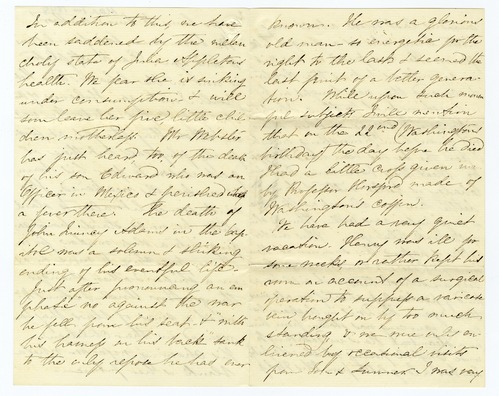 In addition to this we have
been saddened by the melan
choly state of Julia Appleton's
health. We fear she is sinking
under consumption & will
soon leave her five little chil
dren motherless. Mr Webster
has just heard, too, of the death
of his son Edward who was an
Officer in Mexico & perished with
a fever there. The death of
John Quincy Adams in the cap
itol was a solemn & striking
ending of his eventful life.
Just after pronouncing an em
phatic no against the war
he fell from his seat, & "with
his harness on his back sunk
to the only repose he has ever
known. He was a glorious
old man - so energetic for the
right to the last & seemed the
last print of a better genera
tion. While upon such mourn
ful subjects I will mention
that on the 22nd Washington's
birthday the day before he died
I had a little cross given me
by Professor Horsford made of
Washington's coffin.
We have had a very quiet
vacation. Henry was ill for
some weeks, or rather kept his
arm on account of a surgical
operation to suppress a varicose
vein brought on by too much
standing & we were was en
livened by occasional visits
from & Sumner. I was very